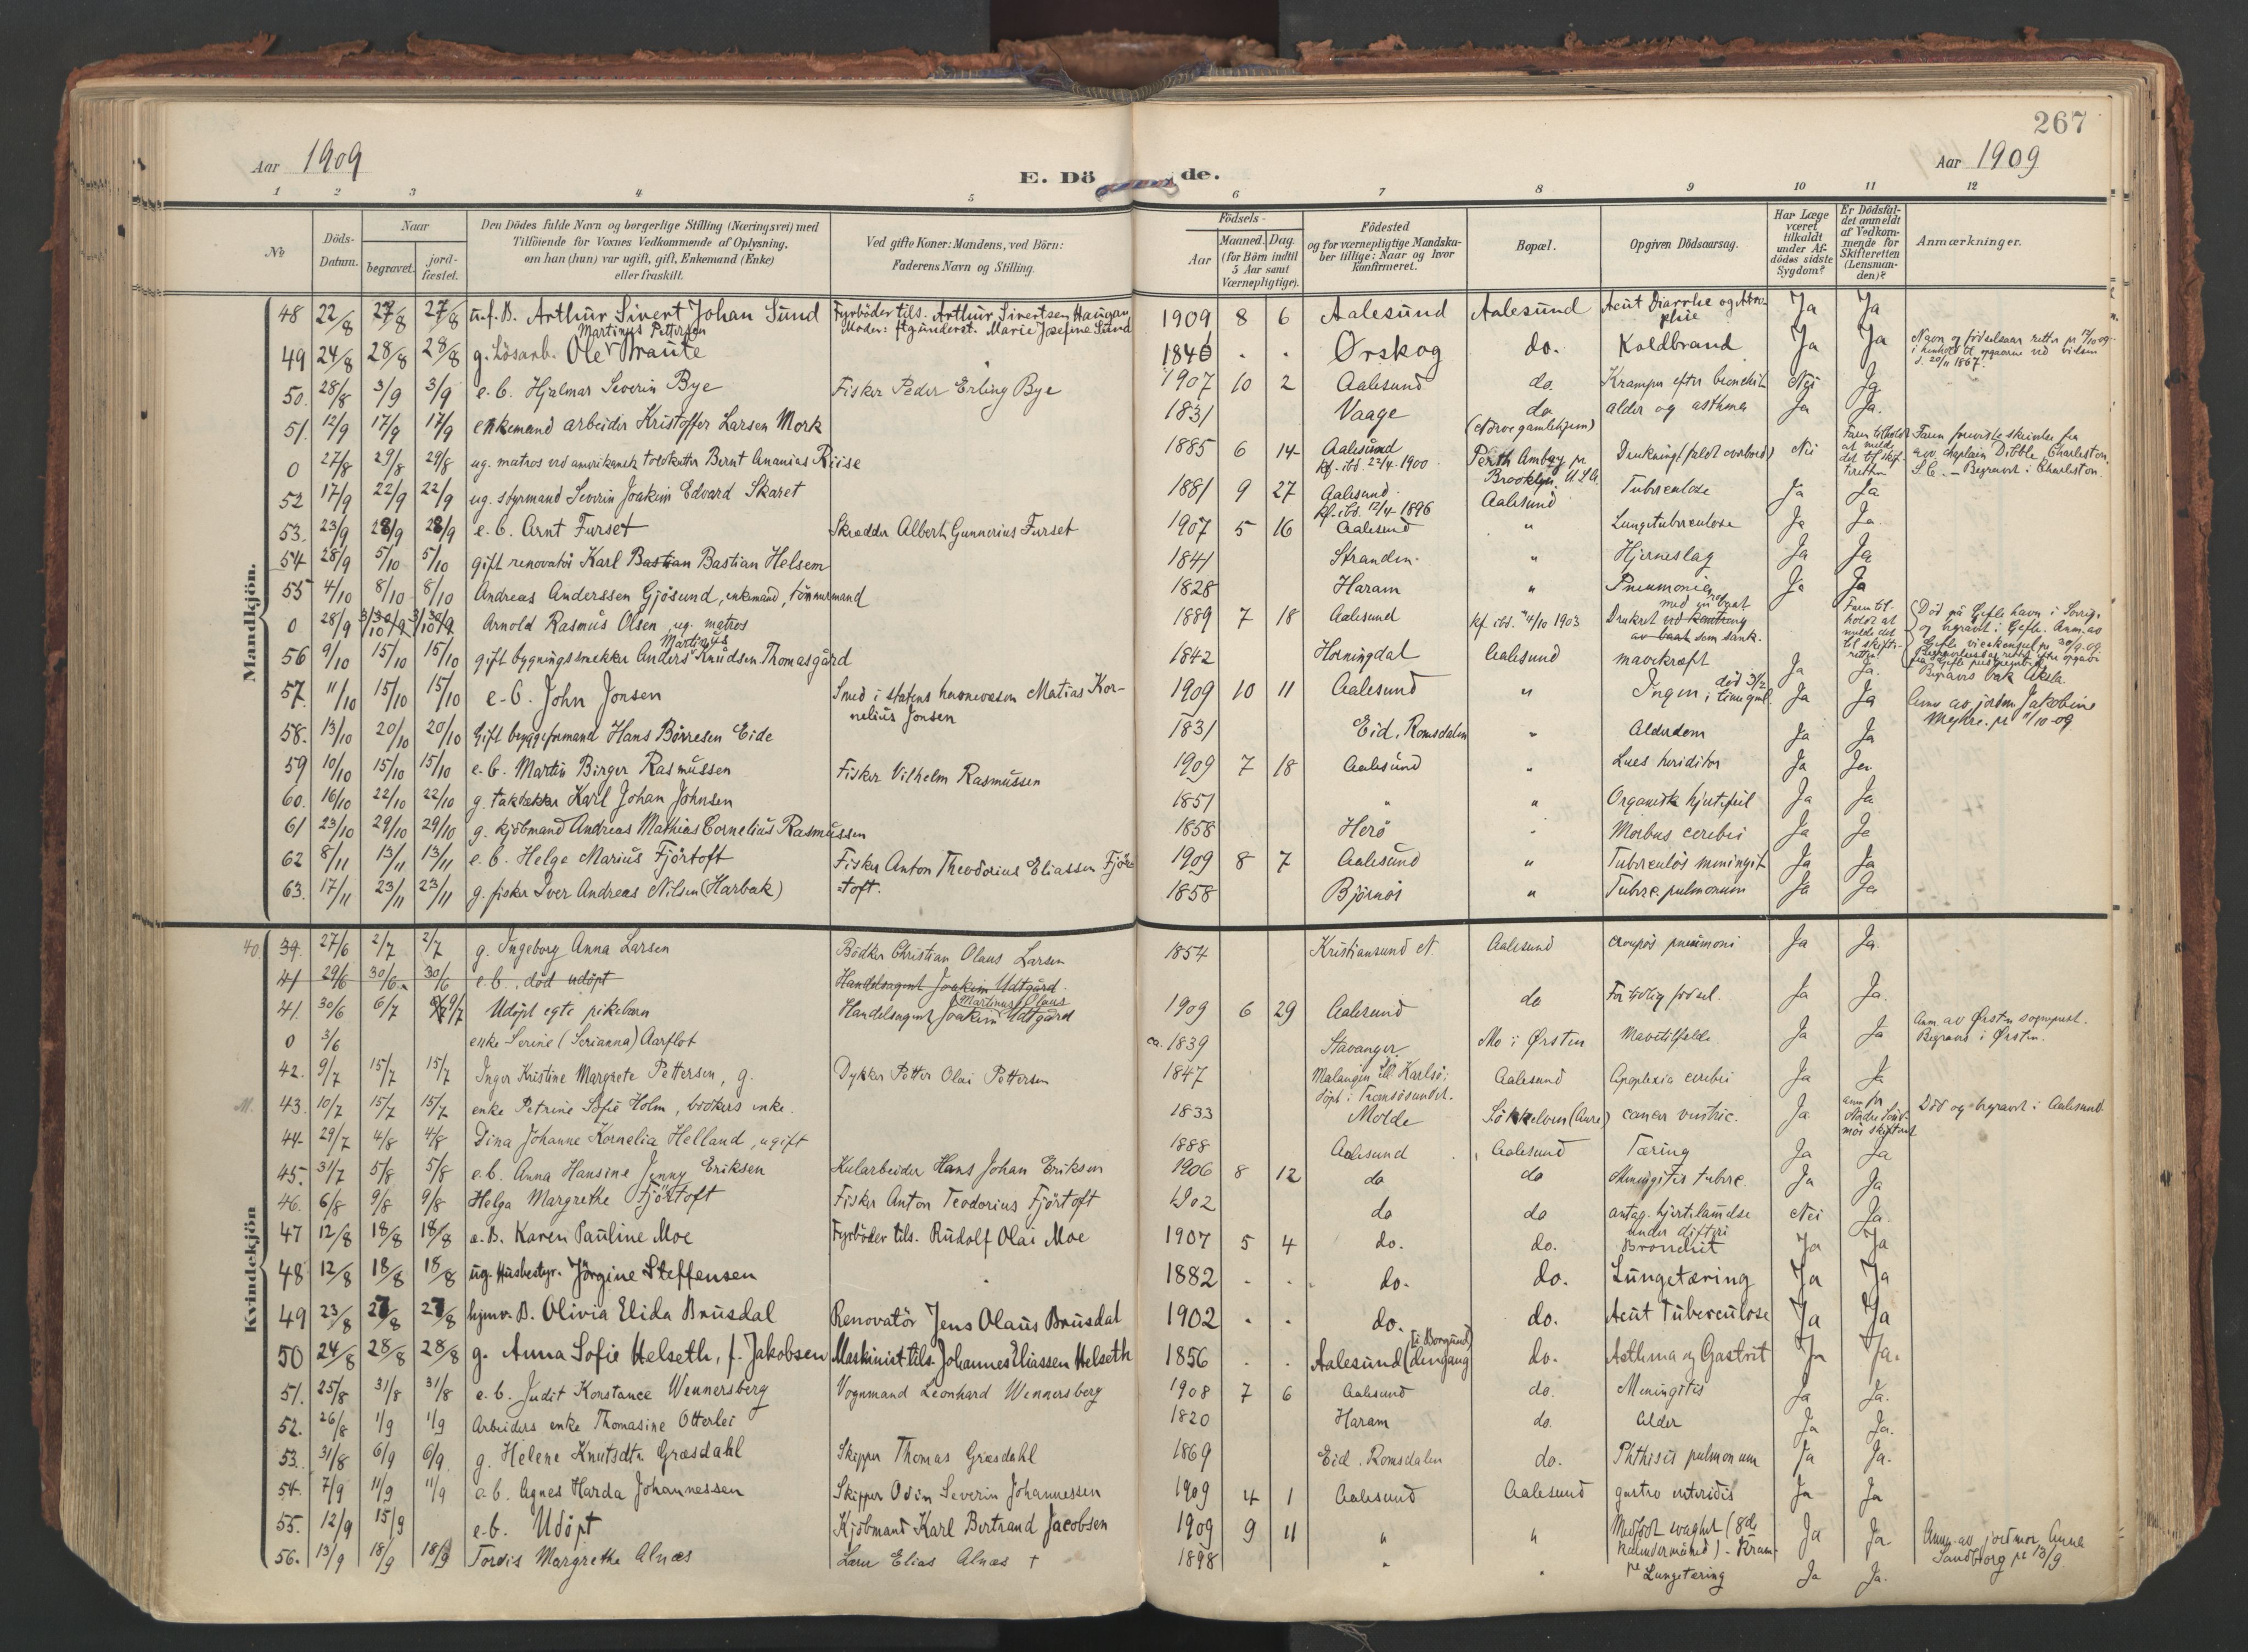 267
Aar 1909
E. Döde.
Aar 1909
1 2 3 4 5 6 7 8 9 10 11 12
No
Döds-Datum.
Naar
begravet.
jord-fæstet.
Den Dödes fulde Navn og borgerlige Stilling (Næringsvei) med
Tilföiende for Voxnes Vedkommende af Oplysning,
om han (hun) var ugift, gift, Enkemand (Enke)
eller fraskilt.
Ved gifte Koner: Mandens, ved Börn:
Faderens Navn og Stilling.
Födsels-
Aar
Maaned. Dag.
(for Börn indtil
5 Aar samt
Værnepligtige).
Födested
og for værnepligtige Mandska-
ber tillige: Naar og hvor
konfirmeret.
Bopæl.
Opgiven Dödsaarsag.
Har Læge
været
tilkaldt
under Af-
dödes sidste
Sygdom?
Er Dödsfal-
det anmeldt
af Vedkom-
mende for
Skifteretten
(Lensman-
den)?
Anmærkninger.
Mandkjön.
48 22/8 27/8 27/8 u.f. B. Arthur Sivert Johan Sund Fyrböder tils. Arthur Sivertsen Haugan Moder: ftgunderst. Marie Josefine Sund 1909 8 6 Aalesund Aalesund Acut Diarrhe og Atrophie Ja Ja
49 24/8 28/8 28/8 g. Lösarb. Ole Martinus Pettersen Braute 1840 Ørskog do. Koldbrand Ja Ja Navn og födselsaar rettet 12/10 09 i henhold til opgaverne ved vielsen d. 20/11 1867.
50. 28/8 3/9 3/9 e. b. Hjalmar Severin Bye Fisker Peder Erling Bye 1907 10 2 Aalesund do. Krampe efter bronchit Nei Ja
51. 12/9 17/9 17/9 enkemand arbeider Kristoffer Larsen Mork 1831 Vaage do (Nörve gamlehjem) alder og asthma Ja Ja.
0 27/8 29/8 29/8 ug. matros ved amerikansk toldkutter Bernt Ananias Riise 1885 6 14 Aalesund kf. ibd. 22/4 1900 Perth Amboy pr Brooklyn U.S.A. Drukning (faldt overbord) Nei Faren tilholdt at melde det til skifteretten Faren foreviste skrivelse fra rev. chaplain Dibble, Charleston, S.C. – Begravet i Charleston.
52 17/9 22/9 22/9 ug. styrmand Severin Joakim Edvard Skaret 1881 9 27 Aalesund kf. ibd. 12/4 1896 Aalesund Tuberculose Ja Ja
53. 23/9 28/9 28/9 e. b. Arnt Furset Skrædder Albert Gunnerius Furset 1907 5 16 Aalesund " Lungetuberculose Ja Ja.
54 28/9 5/10 5/10 gift renovatör Karl Bastian Bastian Helsem 1841 Stranden. " Hjerneslag Ja Ja
55 4/10 8/10 8/10 Andreas Anderssen Gjösund, enkemand, tömmermand 1828 Haram " Pneumonie Ja Ja
0 28/9 3/10 3/10 Arnold Rasmus Olsen, ug. matros 1889 7 18 Aalesund kf. ibd. 4/10 1903 Druknet med en baat som sank. Faren tilholdt at melde det til skifteretten Död på Gefle havn i Sverige og begravet i Gefle.
56 9/10 15/10 15/10 gift bygningssnekker Anders Martinus Knudsen Thomasgård 1842 Horningdal Aalesund mavekræft Ja Ja.
57. 11/10 15/10 15/10 e.b. John Jonsen Smed i statens havnevæsen Matias Kornelius Jonsen 1909 10 11 Aalesund " Ingen; död 3 1/2 time gml. Ja Ja Anm av jordm. Jakobine Myhre. pr 11/10-09
58. 13/10 20/10 20/10 Gift bryggeformand Hans Börresen Eide 1831 Eid, Romsdalen " Alderdom Ja Ja
59 10/10 15/10 15/10 e. b. Martin Birger Rasmussen Fisker Vilhelm Rasmussen 1909 7 18 Aalesund " Lues heriditær Ja Ja
60. 16/10 22/10 22/10 g. takdækker Karl Johan Johnsen 1851 " " Organisk hjertefeil Ja Ja
61 23/10 29/10 29/10 g. kjöbmand Andreas Mathias Cornelius Rasmussen 1858 Herö " Morbus cerebri Ja Ja
62 8/11 13/11 13/11 e. b. Helge Marius Fjörtoft Fisker Anton Theodorius Eliassen Fjörtoft. 1909 8 7 Aalesund " Tuberculös meningit Ja Ja
63. 17/11 23/11 23/11 g. fisker Iver Andreas Nilsen (Harbak) 1858 Björnör " Tuberc. pulmonum Ja Ja
Kvindekjön
40 39. 27/6 2/7 2/7 g. Ingeborg Anna Larsen Bödker Christian Olaus Larsen 1854 Kristiansund N. Aalesund croupös pneumoni Ja Ja.
41 29/6 30/6 30/6 e. b. död udöpt Handelsagent Joakim Udtgård
41. 30/6 6/7 9/7 Udöpt egte pikebarn Handelsagent Joakim Martinus Olaus Udtgård 1909 6 29 Aalesund do For tidlig födsel. Ja Ja.
0 3/6 enke Serine (Serianna) Aarflot ca. 1839 Stavanger Mo i Ørsten Mavetilfelde Ja Ja Anm. av Ørsten sogneprest. Begravet i Ørsten.
42. 9/7 15/7 15/7 Inger Kristine Margrete Pettersen, g. Dykker Petter Olai Pettersen 1847 Malangen ell. Karlsö; döpt i Tromsösundet. Aalesund Apoplexia cerebri Ja Ja
M. 43. 10/7 15/7 15/7 enke Petrine Sofie Holm, bödkers enke. 1833 Molde Sökkelven (Aure) cancer ventric. Ja anm for Nordre Söndmör skifteret Död og begravet i Aalesund.
44 29/7 4/8 4/8 Dina Johanne Kornelia Helland, ugift 1888 Aalesund Aalesund Tæring Ja Ja
45. 31/7 5/8 5/8 e. b. Anna Hansine Jenny Eriksen Kularbeider Hans Johan Eriksen 1906 8 12 do do Meningitis tuberc. Ja Ja
46. 6/8 9/8 9/8 Helga Margrethe Fjörtoft Fisker Anton Teodorius Fjörtoft 1902 do do antag. hjertelamelse under difteri Nei Ja
47 12/8 18/8 18/8 e. B. Karen Pauline Moe Fyrböder tils. Rudolf Olai Moe 1907 5 4 do. do. Bronchit Ja Ja
48 12/8 18/8 18/8 ug. Husbestyr. Jörgine Steffensen 1882 do. do. Lungetæring Ja Ja
49 23/8 27/8 27/8 hjmv. B. Olivia Elida Brusdal Renovatör Jens Olaus Brusdal 1902 do. do. Acut Tuberculose Ja Ja
50 24/8 28/8 28/8 g. Anna Sofie Helseth, f. Jakobsen Maskinist tils. Johannes Eliassen Helseth 1856 Aalesund (i Borgund dengang) do. Asthma og Gastrit Ja Ja.
51. 25/8 31/8 31/8 e. b. Judit Konstance Wennersberg Vognmand Leonhard Wennersberg 1908 7 6 Aalesund do. Meningitis Ja Ja.
52. 26/8 1/9 1/9 Arbeiders enke Thomasine Otterlei 1820 Haram do. Alder Ja Ja.
53. 31/8 6/9 6/9 g. Helene Knutsdtr. Græsdahl Skipper Thomas Græsdahl 1869 Eid, Romsdalen do. Phthisis pulmonum Ja Ja.
54. 7/9 11/9 11/9 e.b. Agnes Harda Johannessen Skipper Odin Severin Johannessen 1909 4 1 Aalesund Aalesund gastro enteridis Ja Ja
55. 12/9 15/9 e.b. Udöpt Kjöbmand Karl Bertrand Jacobsen 1909 9 11 " " Medfödt svaghet (8de kalendermåned) - Krampe Ja Ja Anm. av jordmor Anna Sandborg pr 13/9.
56. 13/9 18/9 18/9 Tordis Margrethe Alnæs Lærer Elias Alnæs † 1898 " " Lungetæring Ja Ja.